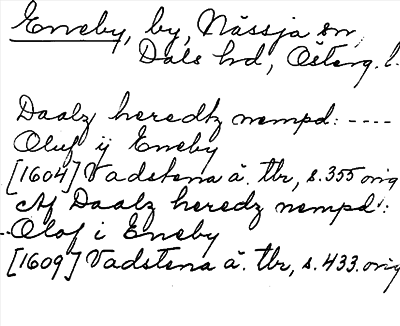 Eneby, by, Nässja sn,
Dals hd, Österg. l.
Daalz heredtz nempd: ----
Oluf ij Eneby
[1604] Vadstena ä. tbr, s. 355 orig
Af Daalz heredz nempd:
Olof i Eneby
[1609] Vadstena ä. tbr, s. 433. orig